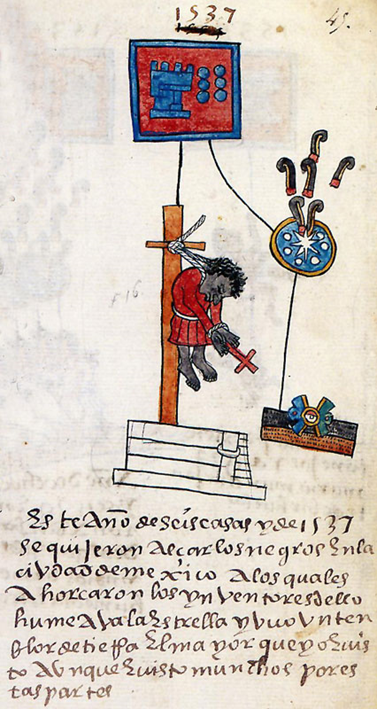 1537
45.
Este Año de seis casas y de 1537
se quisieron alcar los negros en la
civdad de mexico a los quales
Ahorcaron los ynventores dello
humeava la estrella y uvo un ten
blor de tierra el mayor que yo e vis
to Avnque e visto munchos por es
tas partes